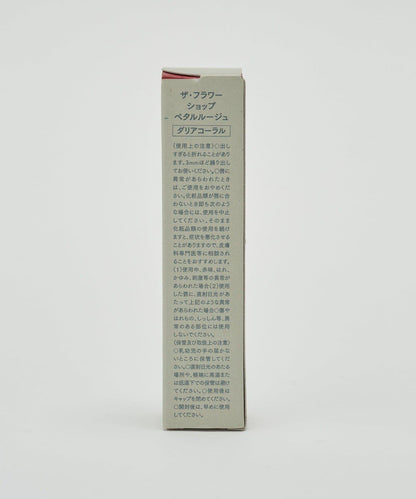 ザ・フラワー
ショップ
ペタルルージュ
ダリアコーラル
〈使用上の注意〉○出し
すぎると折れることがあり
ます。3mmほど繰り出し
てお使いください。○唇に
異常があらわれたとき
は、ご使用をおやめくだ
さい。化粧品類が唇に合
わないとき即ち次のよう
な場合には、使用を中止
してください。そのまま
化粧品類の使用を続け
ますと、症状を悪化させる
ことがありますので、皮膚
科専門医等に相談され
ることをおすすめします。
(1)使用中、赤味、はれ、
かゆみ、刺激等の異常が
あらわれた場合(2)使用
した唇に、直射日光があ
たって上記のような異常
があらわれた場合○傷や
はれもの、しっしん等、異
常のある部位には使用
しないでください。
〈保管及び取扱上の注意〉
○乳幼児の手の届かな
いところに保管してくだ
さい。○直射日光のあたる
場所や、極端に高温また
は低温下での保管は避け
てください。○使用後は
キャップを閉めてください。
○開封後は、早めに使用
してください。